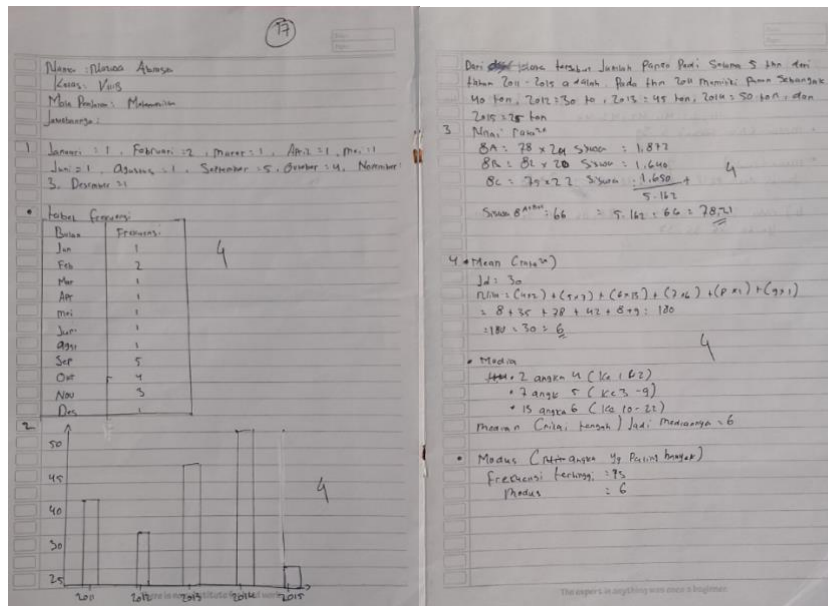 17
Nama : Nazwa
Kelas : VIII B
Mata Pelajaran : Matematika
Jawabannya :
1 Januari = 1, Februari = 2, Maret = 1, April = 1, Mei = 1
Juni = 1, Agustus = 1, September = 5, Oktober = 4, November =
3, Desember = 1
• tabel frekuensi
Bulan Frekuensi
Jan 1
Feb 2
Mar 1
Apr 1
mei 1
Juni 1
Agst 1
Sep 5
Okt 4
Nov 3
Des 1
4
2.
50
45
40
30
25
4
2011 2012 2013 2014 2015
Dari tersebut Jumlah Panen Padi Selama 5 thn dari
tahun 2011 - 2015 adalah. Pada thn 2011 memiliki Panen Sebanyak
40 ton, 2012 = 30 to, 2013 = 45 ton, 2014 = 50 ton, dan
2015 = 25 ton
3 Nilai rata²
8A = 78 x 24 Siswa = 1.872
8B = 82 x 20 Siswa = 1.640
8C = 79 x 22 Siswa = 1.650 +
5.162
4
Siswa 8 : 66 = 5.162 : 66 = 78,21
4 • Mean (rata²)
Jd = 30
= (4x2) + (5x7) + (6x13) + (7x6) + (8x1) + (9x1)
= 8 + 35 + 78 + 42 + 8 + 9 = 180
= 180 : 30 = 6
4
• Median
• 2 angka 4 (ke 1 & 2)
• 7 angk 5 (ke 3 - 9)
• 13 angka 6 (ke 10 - 22)
Median (nilai tengah) Jadi mediannya = 6
• Modus (angka yg Paling banyak)
Frekuensi tertinggi = 13
Modus = 6
The expert in anything was once a beginner